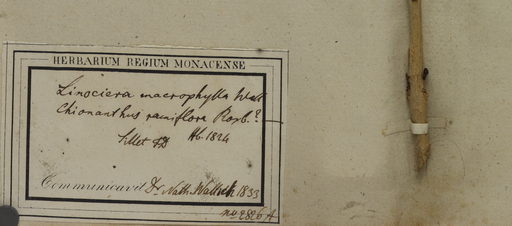 HERBARIUM REGIUM MONACENSE
Linociera macrophylla Wall
Chionanthus ramiflora Roxb.?
Sillet FD Hb. 1824
Communicavit Dr. Nath. Wallich 1833
no 2826 A